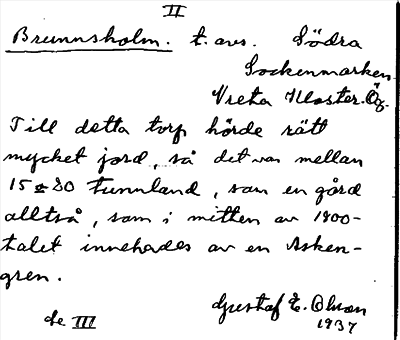 II
Brunnsholm. t. avs. Södra
Sockenmarken.
Vreta Kloster. Ög.
Till detta torp hörde rätt
mycket jord, så det var mellan
15 à 20 tunnland, som en gård
alltså, som i mitten av 1900-
talet innehades av en Asken-
gren.
Gustaf E. Olsson
1937
se III